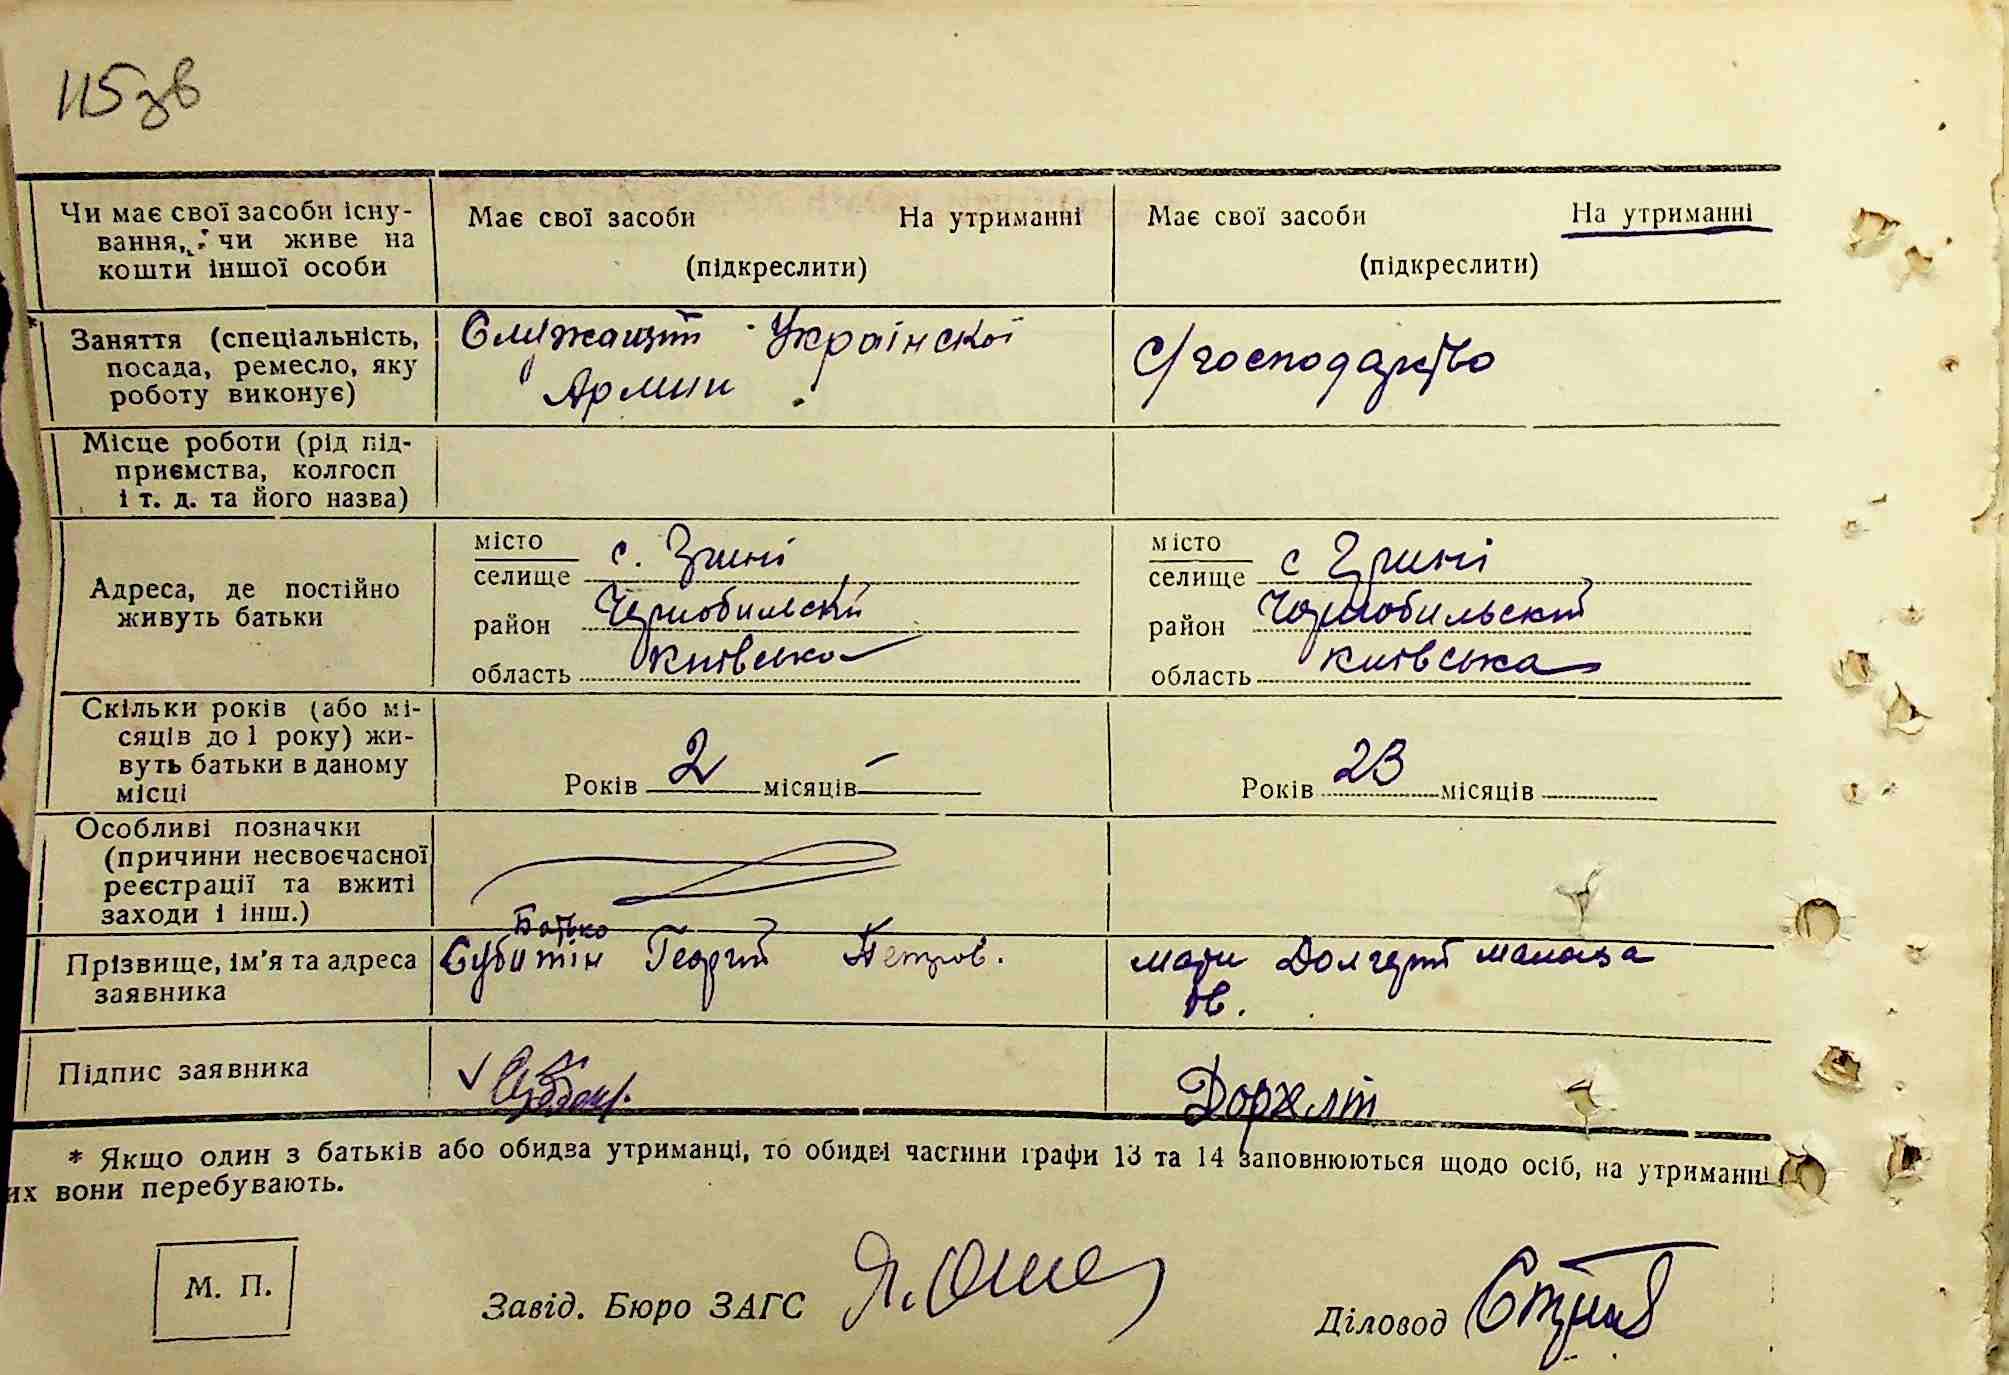 115зв
Чи має свої засоби існу-
вання, чи живе на
кошти іншої особи
Має свої засоби На утриманні
(підкреслити)
Має свої засоби На утриманні
(підкреслити)
Заняття (спеціальність,
посада, ремесло, яку
роботу виконує)
Служащий Українскої
Армии
С/господарство
Місце роботи (рід під-
приємства, колгосп
і т. д. та його назва)
Адреса, де постійно
живуть батьки
місто
селище с.
район Чернобильский
область Київська
місто
селище с
район Чорнобильский
область Київська
Скільки років (або мі-
сяців до 1 року) жи-
вуть батьки в даному
місці
Років 2 місяців —
Років 23 місяців
Особливі позначки
(причини несвоєчасної
реєстрації та вжиті
заходи і інш.)
Прізвище, ім'я та адреса
заявника
Батько
Георгий Петров.
мати
Підпис заявника
* Якщо один з батьків або обидва утриманці, то обидві частини графи 13 та 14 заповнюються щодо осіб, на утриманні
их вони перебувають.
М. П.
Завід. Бюро ЗАГС
Діловод